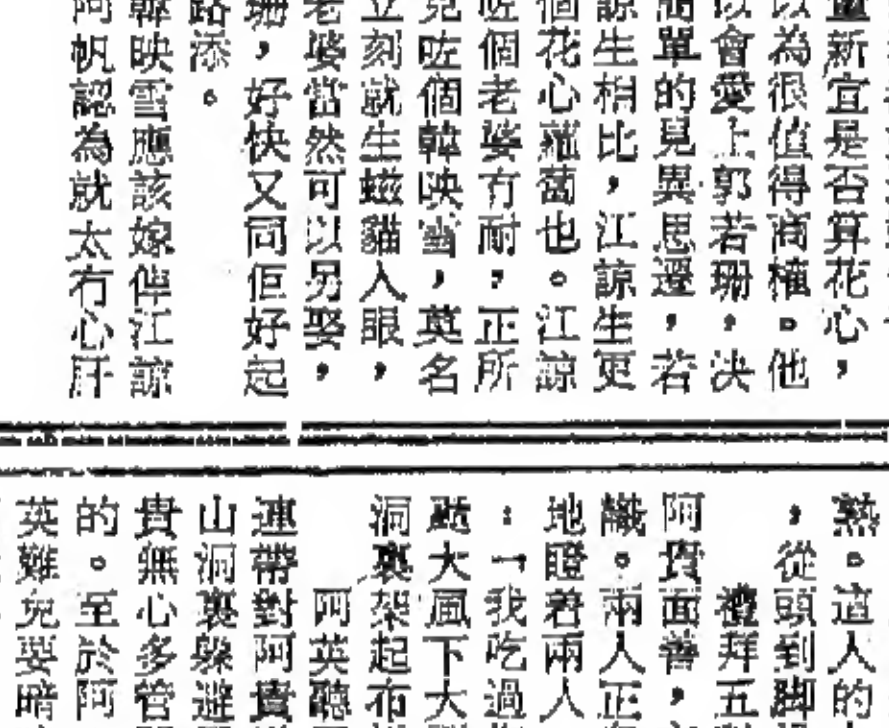 新宜是否算花心，
以為很值得商榷。他
以會愛上郭若珊，決
簡單的見異思遷，若
諒生相比，江諒生更
個花心蘿蔔也。江諒
咗個老婆冇耐，正所
見咗個韓映雪，英名
立刻就生螆貓入眼，
老婆當然可以另娶，
珊，好快又同佢好起
路添。
韓映雪應該嫁俾江諒
阿帆認為就太冇心肝
熟。這人的
，從頭到脚
禮拜五
阿貴面善，
識。兩人正
地瞪着兩人
：「我吃過
颳大風下大
洞裏架起布
阿英聽
連帶對阿貴
山洞裏躲避
貴無心多管
的。至於阿
英難免要暗